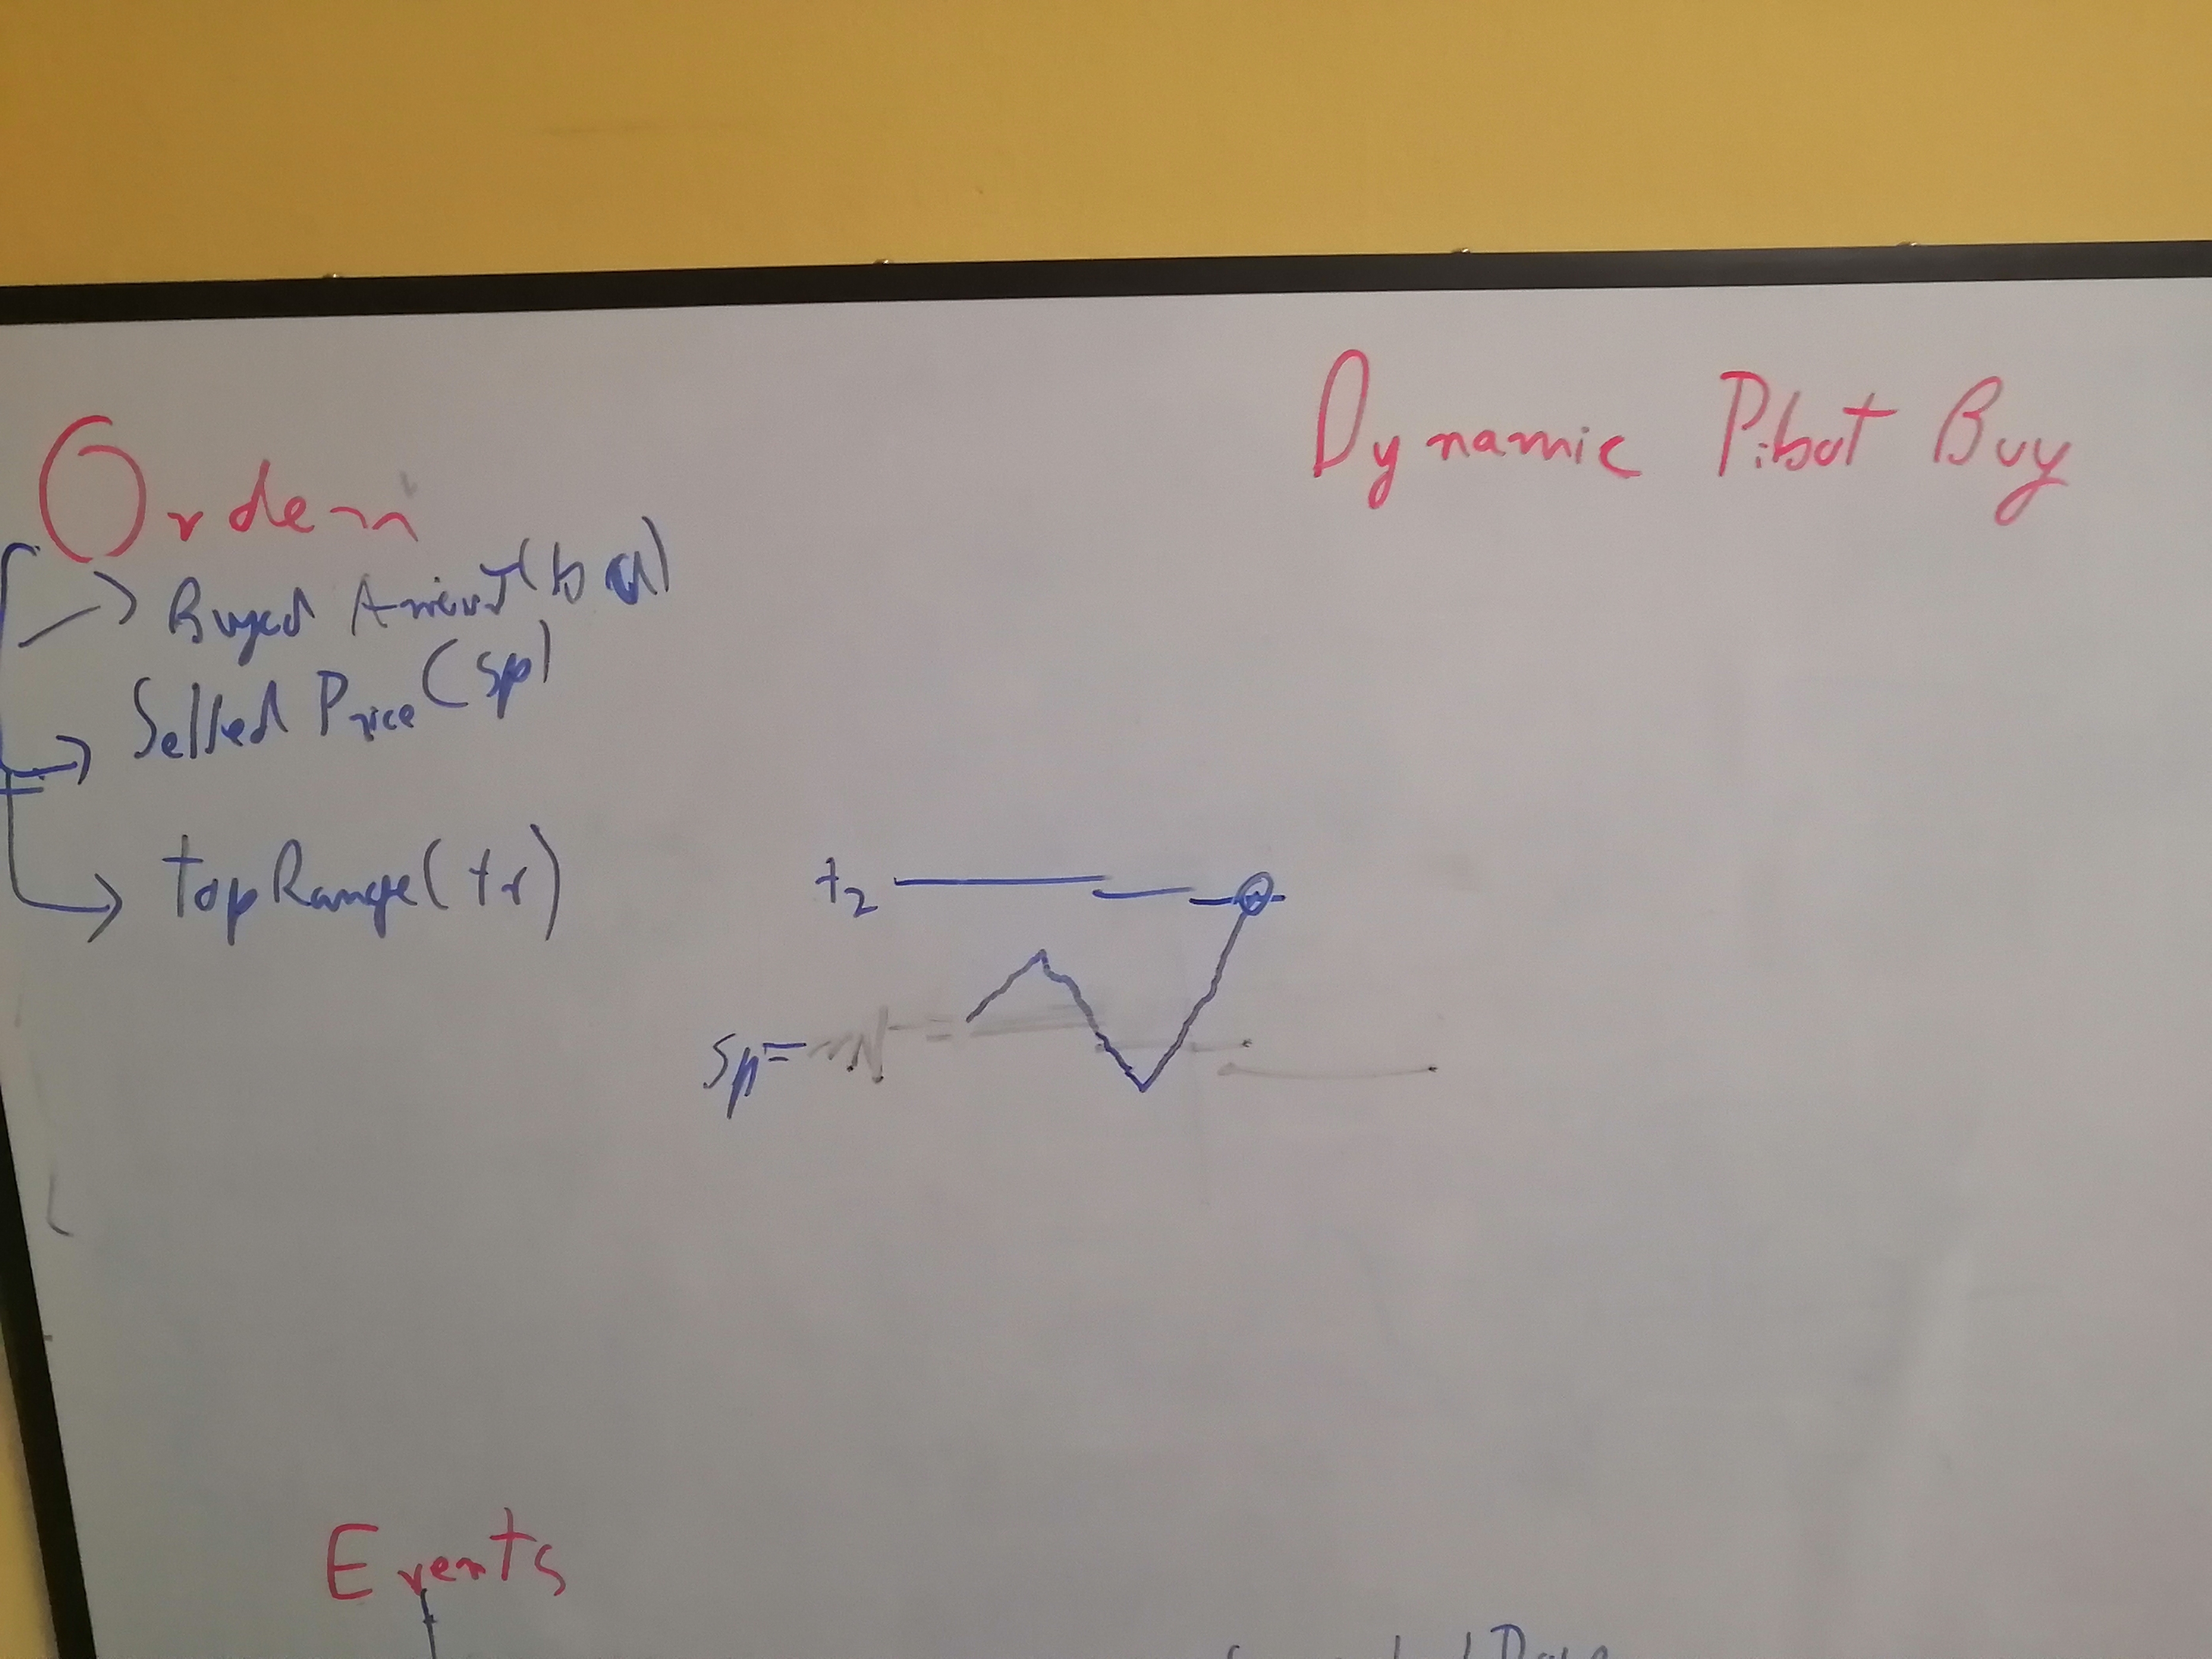 Dynamic Pibot Buy
Orden
Buyed Amount (ba)
Selled Price (sp)
topRange (tr)
t2
sp=
Events